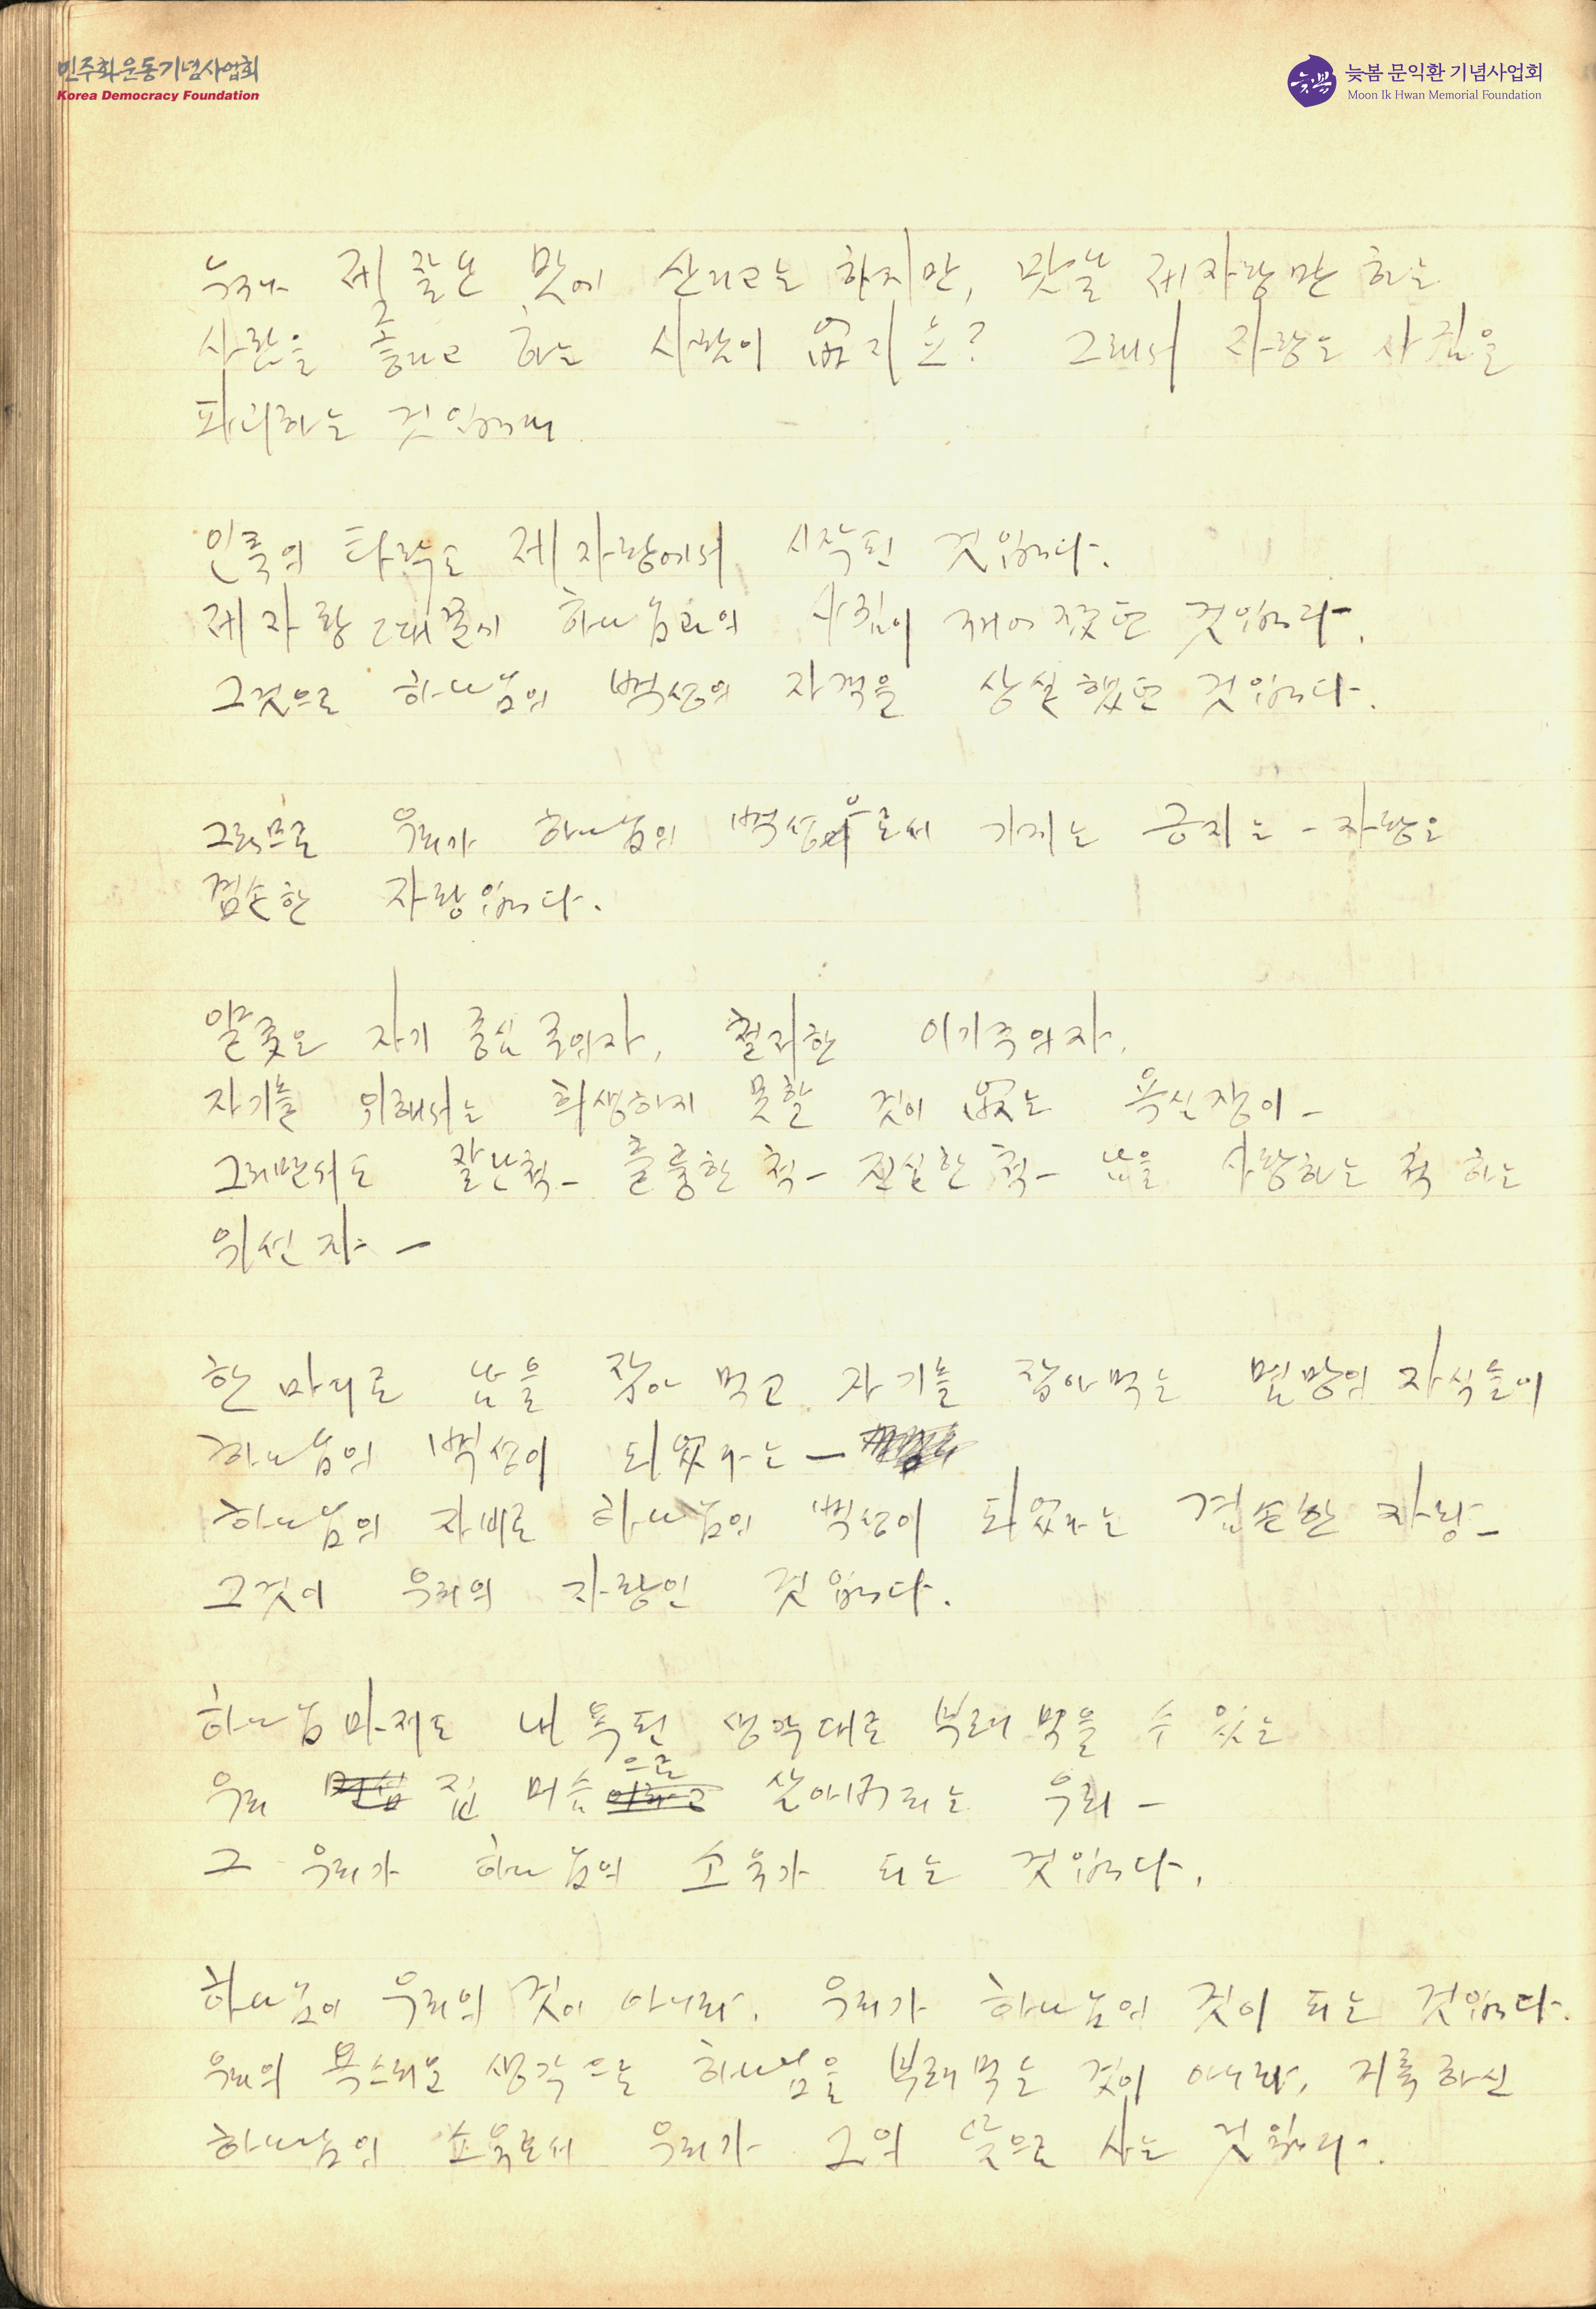 민주화운동기념사업회
Korea Democracy Foundation
늦봄 문익환 기념사업회
Moon Ik Hwan Memorial Foundation
누구나 제 잘난 맛에 산다고는 하지만, 맨날 제 자랑만 하는
사람을 좋다고 하는 사람이 없지요? 그래서 자랑은 사귐을
파괴하는 것입니다
인류의 타락도 제 자랑에서 시작된 것입니다.
제 자랑 때문에 하나님과의 사귐이 깨어졌던 것입니다.
그것으로 하나님의 백성의 자격을 상실했던 것입니다.
그러므로 우리가 하나님의 백성으로서 가지는 긍지는 - 자랑은
겸손한 자랑입니다.
얄궂은 자기 중심주의자, 철저한 이기주의자,
자기를 위해서는 희생하지 못할 것이 없는 욕심장이 -
그러면서도 잘난 척 - 훌륭한 척 - 진실한 척 - 남을 사랑하는 척 하는
위선자 -
한 마디로 남을 잡아 먹고 자기를 잡아먹는 멸망의 자식들이
하나님의 백성이 되었다는 -
하나님의 자비로 하나님의 백성이 되었다는 겸손한 자랑 -
그것이 우리의 자랑인 것입니다.
하나님마저도 내 욕된 생각대로 부려 먹을 수 있는
우리 집 머슴으로 삼아버리는 우리 -
그 우리가 하나님의 소유가 되는 것입니다.
하나님이 우리의 것이 아니라, 우리가 하나님의 것이 되는 것입니다.
우리의 욕스러운 생각으로 하나님을 부려먹는 것이 아니라, 거룩하신
하나님의 소유로서 우리가 그의 뜻으로 사는 것입니다.